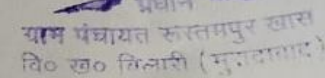 प्रधान
ग्राम पंचायत रूस्तमपुर खास
वि० ख० बिलारी (मुरादाबाद)